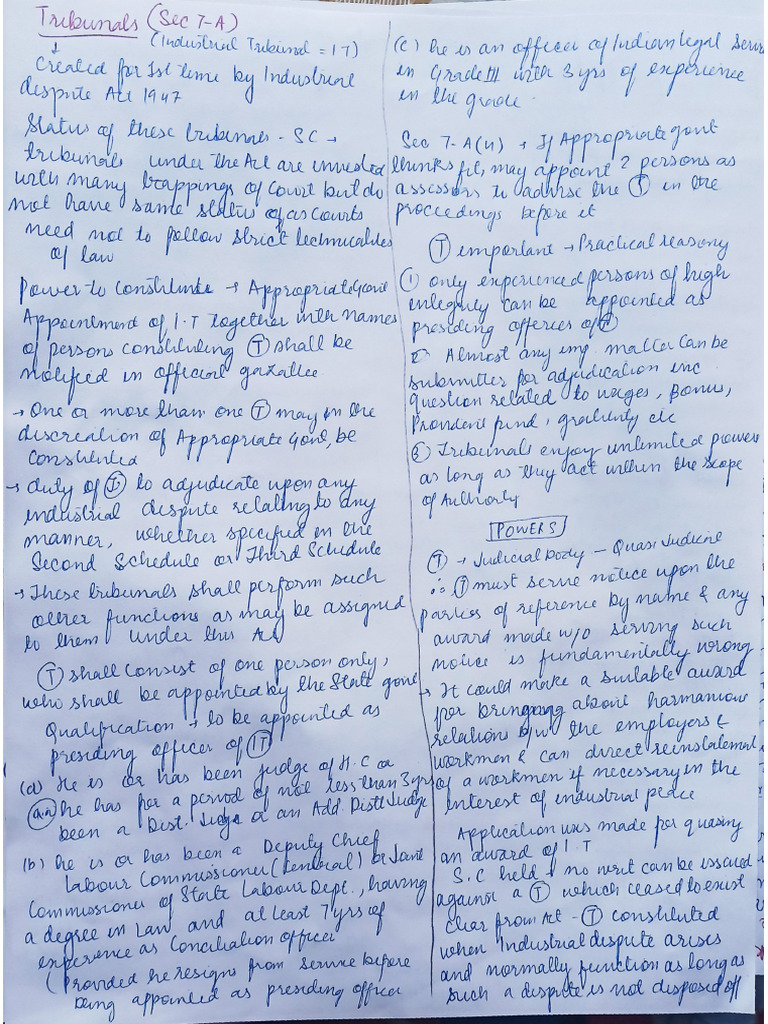 Tribunals (Sec 7-A)
(Industrial Tribunal = I T)
Created for 1st time by Industrial
dispute Act 1947
Status of these tribunals - SC →
tribunals under the Act are invested
with many trappings of Court but do
not have same status of as Courts
need not to follow strict technicalities
of law
Power to constitute → Appropriate Govt
Appointment of I.T together with names
of persons constituting (T) shall be
notified in official gazattee
→ One or more than one (T) may in the
discreation of Appropriate Govt, be
Constituted
→ duty of (I.T) to adjudicate upon any
industrial dispute relating to any
manner, whether specified in the
Second Schedule or Third Schedule
→ These tribunals shall perform such
other functions as may be assigned
to them under this Act
(T) shall Consist of one person only,
who shall be appointed by the State govt
Qualification → to be appointed as
presiding officer of (IT)
(a) He is or has been judge of H.C or
(a.a) he has for a period of not less than 3 yrs
been a Dist. Judge or an Add. Distt Judge
(b) he is or has been a Deputy Chief
Labour Commissioner (Central) or Joint
Commissioner of State Labour Dept., having
a degree in Law and at least 7 yrs of
experience as Conciliation officer
(Provided he resigns from service before
being appointed as presiding officer
(c) he is an officer of Indian legal Serv
in Grade III with 3 yrs of experience
in the grade.
Sec 7-A(4) → If Appropriate govt
thinks fit, may appoint 2 persons as
assessors to advise the (T) in the
proceedings before it
(T) important → Practical reasony
(1) only experienced persons of high
integrity can be appointed as
presiding officers of (T)
Almost any imp. matter can be
submitter for adjudication inc
question related to wages, Bonus,
Provident fund, gratituty etc
(3) Tribunals enjoy unlimited powers
as long as they act within the scope
of Authority
POWERS
(T) → Judicial body - Quasi Judicine
∴ (T) must serve notice upon the
parties of reference by name & any
award made w/o serving such
notice is fundamentally wrong
→ It could make a suitable award
for bringing about harmanious
relations b/w the employers &
workmen & can direct reinstatement
of a workmen if necessary in the
interest of industrial peace
Application was made for quasing
an award of I.T
S.C held → no writ can be issued
against a (T) which ceased to exist
clear from Act - (T) constituted
when Industrial dispute arises
and normally function as long as
such a dispute is not disposed off